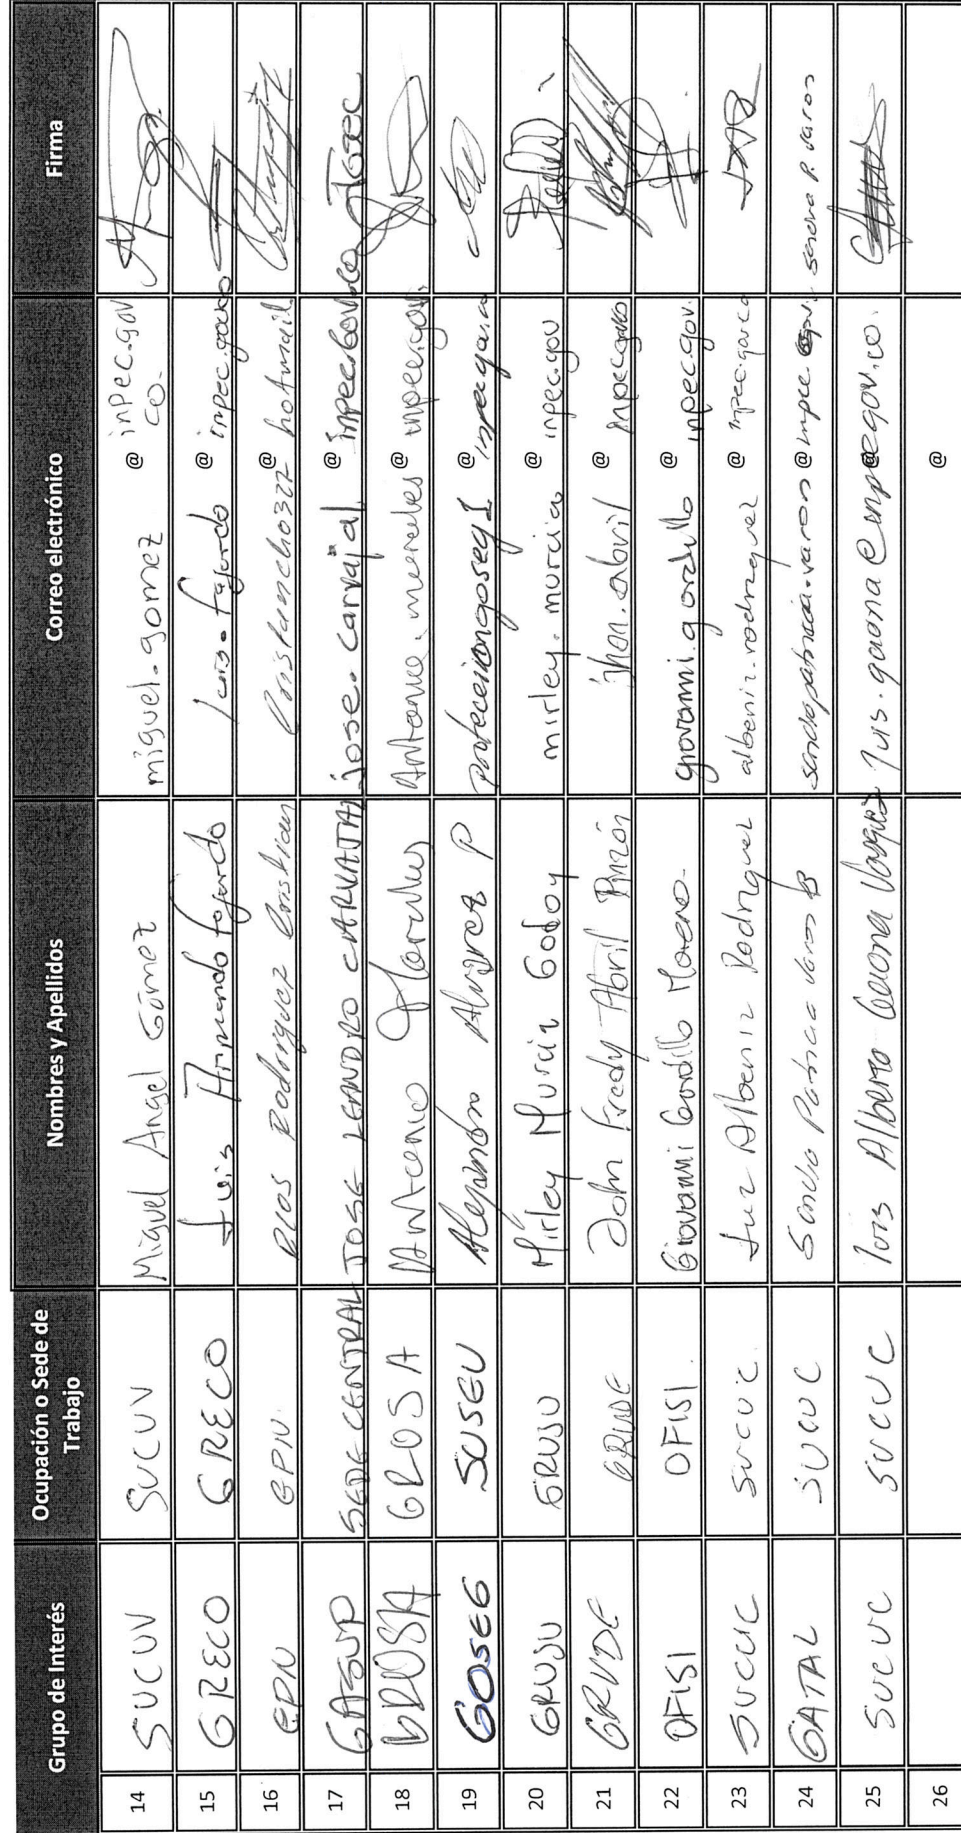 Grupo de Interés Ocupación o Sede de Trabajo Nombres y Apellidos Correo electrónico Firma
14 SUCUV SUCUV Miguel Angel Gómez miguel.gomez @ inpec.gov co.
15 GRECO GRECO Luis Armando fajardo luis.fajardo @ inpec.gov.co
16 EPN EPN Rodriguez Cristian @ hotmail
17 GASUP SEDE CENTRAL JOSE LEANDRO CARVAJAL jose.carvajal @ inpec.gov.co
18 GROSA GROSA @
19 GOSEG SUSEU Alejandro Alvarez P @
20 GRUSU GRUSU Mirley Murcia Godoy mirley.murcia @ inpec.gov
21 GRUDE GRUDE John Fredy Abril Pinzón jhon.abril @ inpec.gov.co
22 OFISI OFISI Giovanni Gordillo Moreno. giovanni.gordillo @ inpec.gov.
23 SUCUC SUCUC Luz Albeniz Rodriguez albeniz.rodriguez @ inpec.gov.co
24 GATAL SUCUC Sandra Patricia Varon B sandrapatricia.varon @ inpec Sandra P. Varon
25 SUCUC SUCUC Luis Alberto Gaona Vasquez luis.gaona @ inpec.gov.co.
26 @